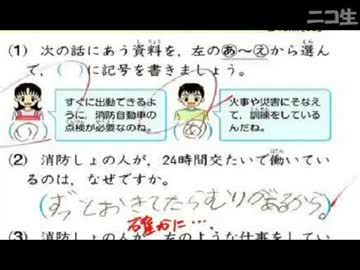 ニコ生
(1) 次の話にあう資料を，左のあ〜えから選ん
で，( )に記号を書きましょう。
すぐに出動できるよ
うに，消防自動車の
点検が必要なのね。
(い)
火事や災害にそなえ
て，訓練をしている
んだね。
(あ)
(2) 消防しょの人が，24時間交たいで働いてい
るのは，なぜですか。
(ずっとおきてたらむりがあるから。)
確かに…
(3) 消防しょの人が，左のような仕事をしてい